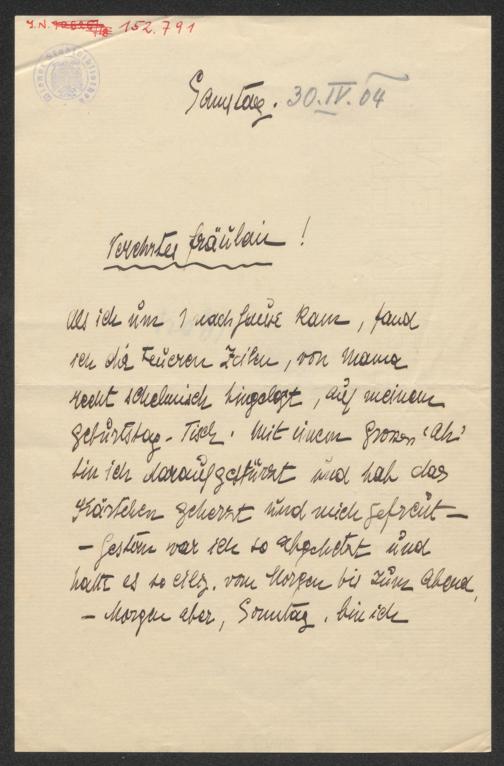 J.N. 152.791
Wiener Stadtbibliothek
Samstag. 30.IV.04
Verehrtes Fräulein!
Als ich um 1 nach Hause kam, fand
ich die teueren Zeilen, von Mama
recht schelmisch hingelegt, auf meinem
Geburtstag-Tisch. Mit einem grossen 'Ah'
bin ich daraufgestürzt und hab das
Kärtchen geherzt und mich gefreut –
– Gestern war ich so abgehetzt und
hatte es so eilig. von Morgen bis zum Abend,
– Morgen aber, Sonntag, bin ich